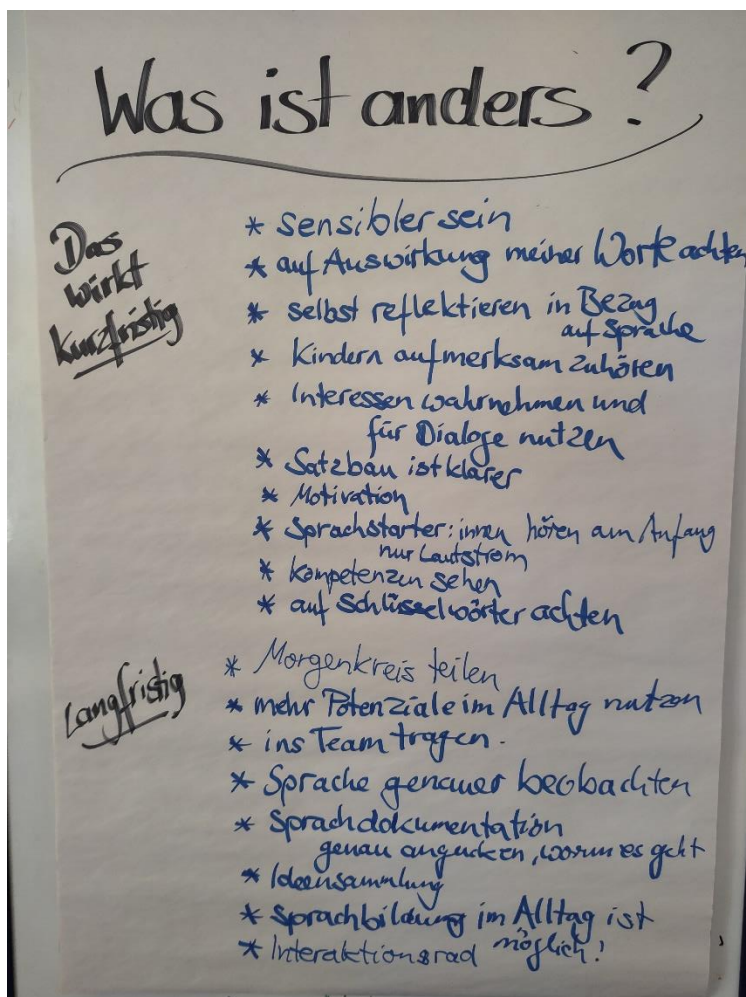 Was ist anders?
Das
wirkt
kurzfristig
* sensibler sein
* auf Auswirkung meiner Worte achten
* selbst reflektieren in Bezug
auf Sprache
* Kindern aufmerksam zuhören
* Interessen wahrnehmen und
für Dialoge nutzen
* Satzbau ist klarer
* Motivation
* Sprachstarter:innen hören am Anfang
nur Lautstrom
* Kompetenzen sehen
* auf Schlüsselwörter achten
Langfristig
* Morgenkreis teilen
* mehr Potenziale im Alltag nutzen
* ins Team tragen.
* Sprache genauer beobachten
* Sprachdokumentation
genau angucken, worum es geht
* Ideensammlung
* Sprachbildung im Alltag ist
möglich!
* Interaktionsrad